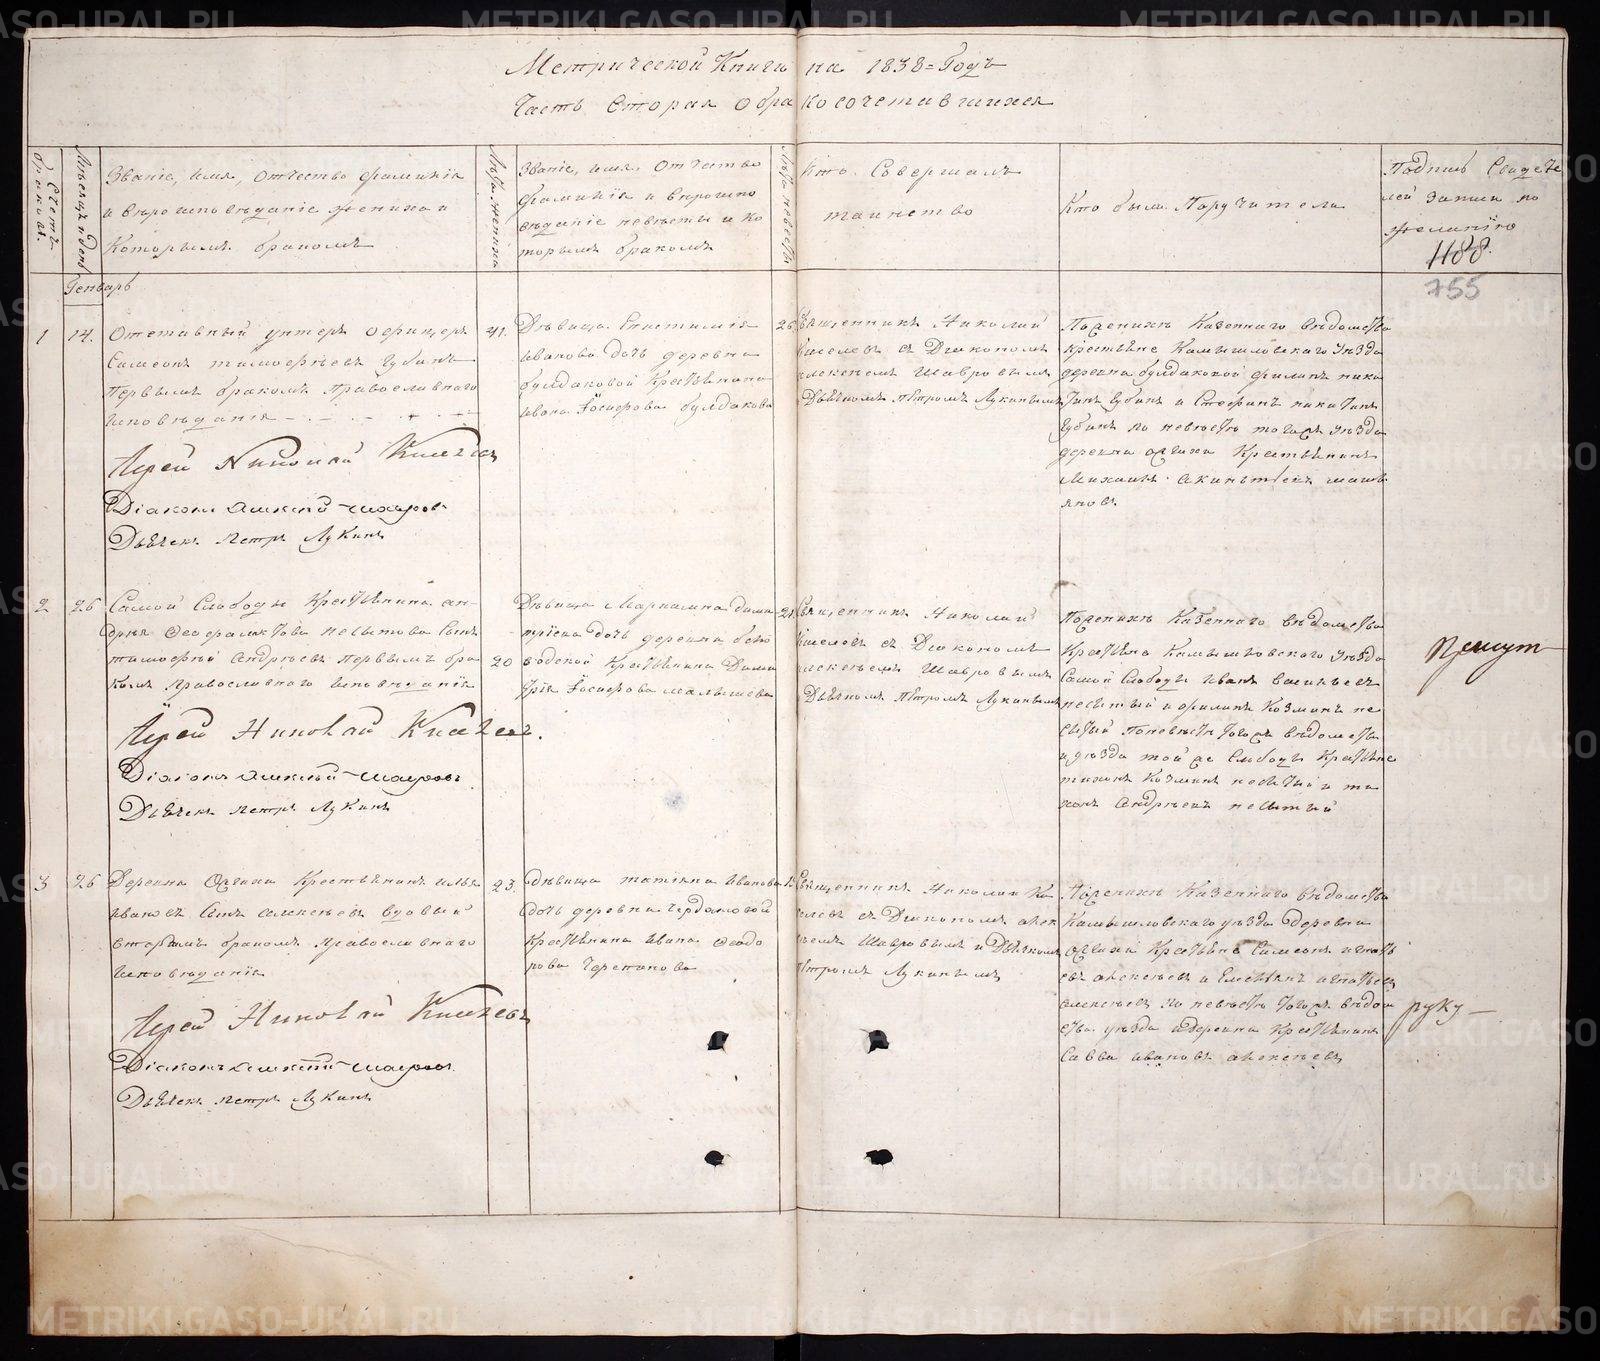 Метрической Книги на 1838=Годъ
Часть Вторая о бракосочетавшихся
Счетъ браковъ.
Мѣсяцъ и день
Званіе, имя, отчество фамилія
и вѣроисповѣданіе жениха и
Которымъ бракомъ
Лѣта жениха
Званіе, имя, отчество
фамилія и вѣроиспо
вѣданіе невѣсты и ко
торымъ бракомъ
Лѣта невѣсты
Кто Совершалъ
таинство
Кто были Поручители
Подпись Свидете
лей записи по
желанію
1188.
755
Генварь
1
14.
Отставный унтеръ офицеръ
Симеонъ тимофѣевъ Губинъ
Первымъ бракомъ Православнаго
исповѣданія
Іерей Николай Киселевъ
Діаконъ Алексій Шавровъ
Дьячекъ Петръ Лукинъ
41.
Дѣвица Епистимія
Иванова дочь деревни
булдаковой Крестьянина
Ивана Іосифова булдакова
Священникъ Николай
Киселевъ съ Діакономъ
алексѣемъ Шавровымъ
Дьячкомъ Петромъ Лукинымъ
По женихѣ Казеннаго вѣдомства
крестьяне Камышловскаго уѣзда
деревни булдаковой филипъ ники
тинъ Губинъ и Стефанъ никитинъ
Губинъ по невѣстѣ тогожъ уѣзда
деревни Крестьянинъ
Михаилъ
2
26
Самой Слободы Крестьянина ан-
дрея Феофилактова Несытова Сынъ
тимофѣй Андрѣевъ Первымъ бра
комъ Православнаго исповѣданія
Іерей Николай Киселевъ.
Діаконъ Алексій Шавровъ
Дьячекъ Петръ Лукинъ
20
Дѣвица Маріамна дими
тріева дочь деревни
Крестьянина Дими
трія Іосифова малышева
21
Священникъ Николай
Киселевъ съ Діакономъ
алексѣемъ Шавровымъ
Дьячкомъ Петромъ Лукинымъ
По женихѣ Казеннаго вѣдомства
Крестьяне Камышловскаго уѣзда
Самой Слободы Иванъ Васильевъ
несытый и филипъ Козминъ не
сытый По невѣстѣ тогожъ вѣдомства
и уѣзда той же Слободы Крестьяне
тихонъ Козминъ несытый и ти
хонъ Андрѣевъ несытый
3
26
Деревни Крестьянинъ илья
ивановъ Сынъ алексѣевъ вдовый
вторымъ бракомъ православнаго
исповѣданія
Іерей Николай Киселевъ
Діаконъ Алексій Шавровъ
Дьячекъ Петръ Лукинъ
23.
Дѣвица татіяна иванова
дочь деревни Чердановой
Крестьянина Ивана Феодо
рова Черепанова
Священникъ Николай Ки
селевъ съ Діакономъ алек
сѣемъ Шавровымъ и Дьячкомъ
Петромъ Лукинымъ
По женихѣ Казеннаго вѣдомства
Камышловскаго уѣзда деревни
Крестьяне Симеонъ игнать
евъ алексѣевъ и игнатьевъ
алексѣевъ по невѣстѣ тогожъ вѣдом
ства уѣзда и деревни Крестьянинъ
Савва ивановъ алексѣевъ
руку